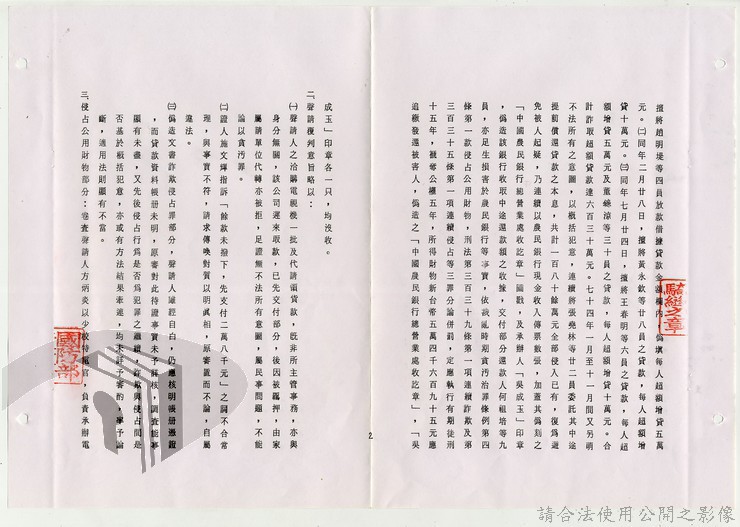 擅將趙明堤等四員放款借據貸款金額欄內，偽填每人超額增貸五萬
元。㈡同年二月廿八日，擅將黃永歡等廿八員之貸款，每人超額增
貸十萬元。㈢同年七月廿四日，擅將王春明等六員之貸款，每人超
額增貸五萬元及董等三十員之貸款，每人超額增貸十萬元。合
計詐取超額貸款達六百三十萬元。七十四年一月至十一月間又另萌
不法所有之意圖，以概括犯意，連續將張堯林等廿二員委託其中途
提前償還貸款之本息，共計一百八十餘萬元全部侵入已有，復為避
免被人起疑，乃連續以農民銀行現金收入傳票數張，加蓋其偽刻之
「中國農民銀行總營業處收訖章」圖戳，及承辦人「吳成玉」印章
，偽造該銀行收取中途還款額之收據，交付部分還款人何祖培等九
員，亦足生損害於農民銀行等事實，依戡亂時期貪污治罪條例第四
條第一款侵占公用財物，刑法第三百三十九條第一項連續詐欺及第
三百三十五條第一項連續侵占等三罪分論併罰，定應執行有期徒刑
十五年，褫奪公權五年，所得財物新台幣五萬四千六百九十五元應
追繳發還被害人，偽造之「中國農民銀行總營業處收訖章」，「吳
2
成玉」印章各一只，均沒收。
二、聲請覆判意旨略以：
㈠聲請人之洽購電視機一批及代請領貸款，既非所主管事務，亦與
身分無關，該公司遲來取款，已先交付部分，後因被羈押，由家
屬請單位代轉亦被拒，足證無不法所有意圖，屬民事問題，不能
論以貪污罪。
㈡證人施文輝指訴「餘款未撥下，先支付二萬八千元」之詞不合常
理，與事實不符，請求傳喚對質以明真相，原審置而不論，自屬
違法。
㈢偽造文書詐欺侵占罪部分，聲請人雖經自白，仍應核明帳冊憑證
，而貸款資料帳冊未明，原審對此待證事實未予詳核，調查能事
顯有未盡，又先後侵占行為是否為犯罪之繼續，詐欺與侵占間是
否基於概括犯意，亦或有方法結果牽連，均未詳予審酌，率予論
斷，適用法則顯有不當。
三、侵占公用財物部分：卷查聲請人方炳炎以少校特服官，負責承辦電
國防部
騎縫之章
請合法使用公開之影像